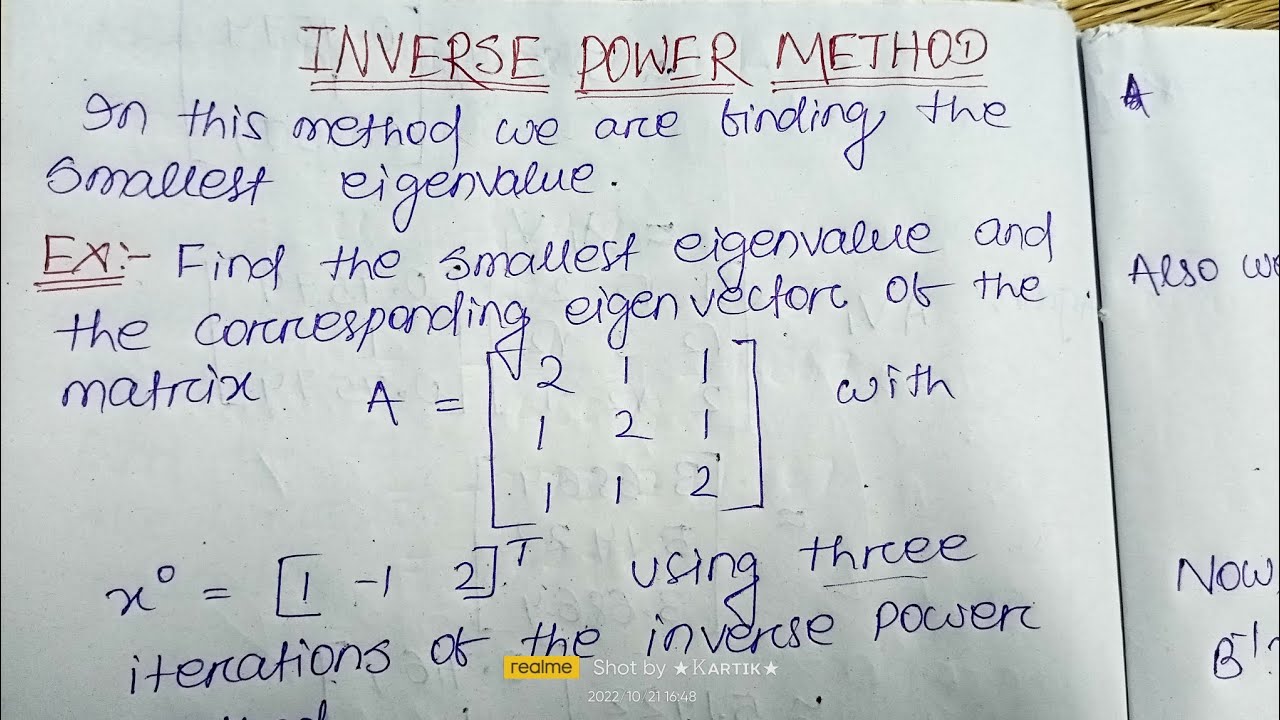 INVERSE POWER METHOD
In this method we are finding the
smallest eigenvalue.
Ex:- Find the smallest eigenvalue and
the corresponding eigenvector of the
matrix A = [2 1 1 with
1 2 1
1 1 2]
x⁰ = [1 -1 2]ᵀ using three
iterations of the inverse power
realme Shot by ★KARTIK★
2022/10/21 16:48
A
Also we
Now,